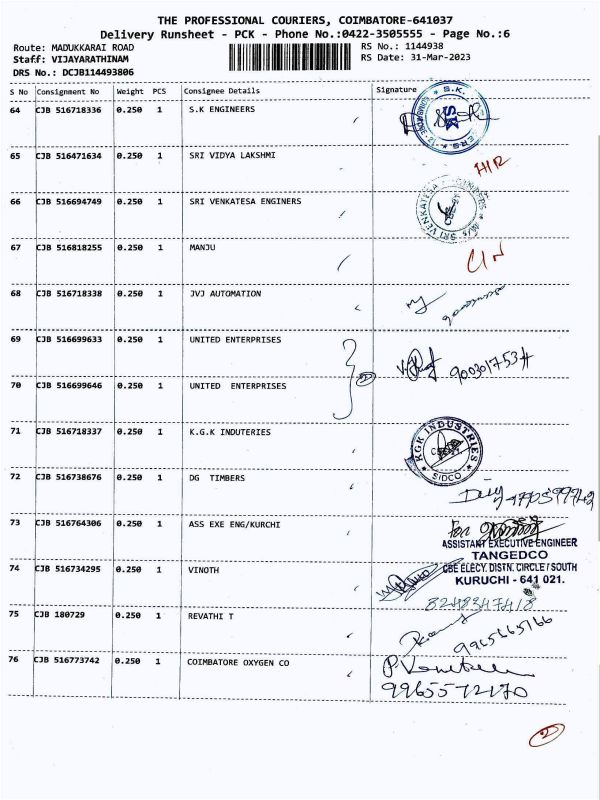 THE PROFESSIONAL COURIERS, COIMBATORE-641037
Delivery Runsheet - PCK - Phone No.:0422-3505555 - Page No.:6
Route: MADUKKARAI ROAD RS No.: 1144938
Staff: VIJAYARATHINAM RS Date: 31-Mar-2023
DRS No.: DCJB114493806
S No Consignment No Weight PCS Consignee Details Signature
64 CJB 516718336 0.250 1 S.K ENGINEERS
65 CJB 516471634 0.250 1 SRI VIDYA LAKSHMI
66 CJB 516694749 0.250 1 SRI VENKATESA ENGINERS
67 CJB 516818255 0.250 1 MANJU
68 CJB 516718338 0.250 1 JVJ AUTOMATION
69 CJB 516699633 0.250 1 UNITED ENTERPRISES
70 CJB 516699646 0.250 1 UNITED ENTERPRISES
2
71 CJB 516718337 0.250 1 K.G.K INDUTERIES
KGK INDUSTRIES
SIDCO
72 CJB 516738676 0.250 1 DG TIMBERS
73 CJB 516764306 0.250 1 ASS EXE ENG/KURCHI
ASSISTANT EXECUTIVE ENGINEER
TANGEDCO
CBE ELECY. DISTN. CIRCLE / SOUTH
KURUCHI - 641 021.
74 CJB 516734295 0.250 1 VINOTH
8248347418
75 CJB 180729 0.250 1 REVATHI T
9965665766
76 CJB 516773742 0.250 1 COIMBATORE OXYGEN CO
9965572170
2